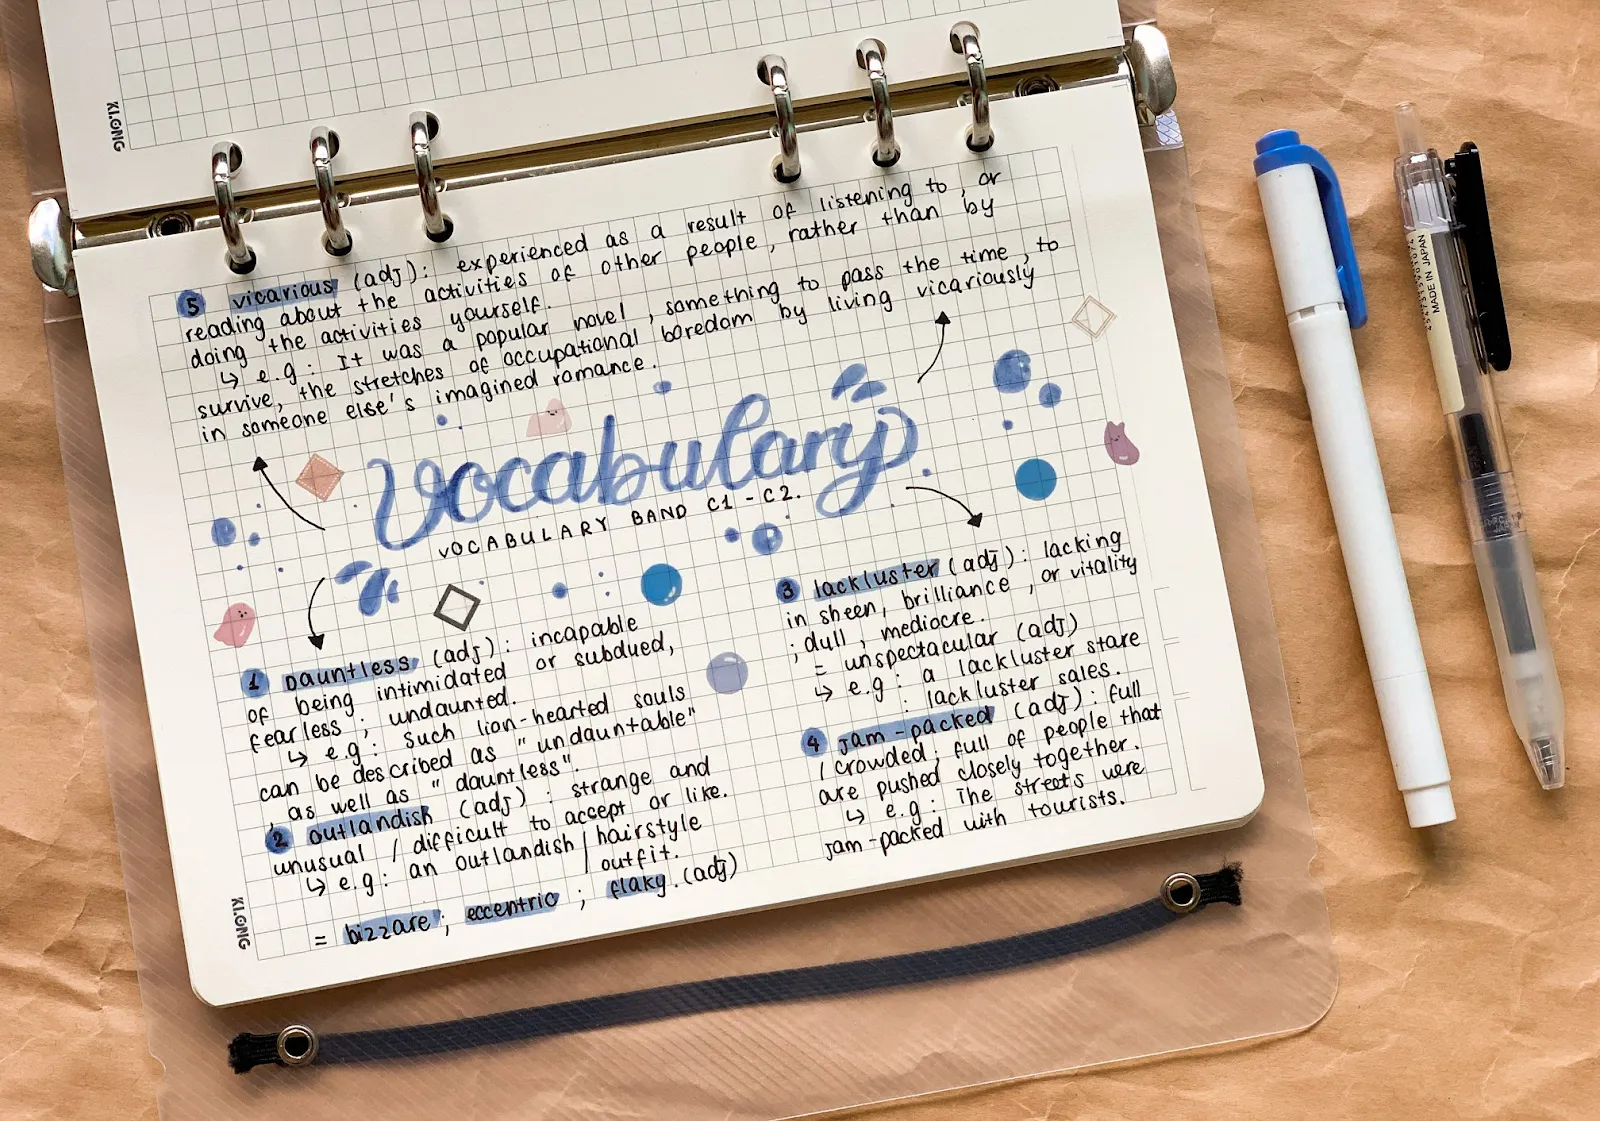 KI.ONG
5 vicarious (adj): experienced as a result of listening to, or
reading about the activities of other people, rather than by
doing the activities yourself.
↳ e.g: It was a popular novel, something to pass the time, to
survive, the stretches of occupational boredom by living vicariously
in someone else's imagined romance.
Vocabulary
VOCABULARY BAND C1-C2.
1 Dauntless (adj): incapable
of being intimidated or subdued,
fearless; undaunted.
↳ e.g: such lion-hearted souls
can be described as "undauntable"
, as well as "dauntless".
2 outlandish (adj): strange and
unusual / difficult to accept or like.
↳ e.g: an outlandish / hairstyle
/ outfit.
= bizzare; eccentric; flaky. (adj)
3 lackluster (adj): lacking
in sheen, brilliance, or vitality
; dull, mediocre.
= unspectacular (adj)
↳ e.g: a lackluster stare
: lackluster sales.
4 jam-packed (adj): full
/ crowded; full of people that
are pushed closely together.
↳ e.g: The streets were
jam-packed with tourists.
KI.ONG
MADE IN JAPAN